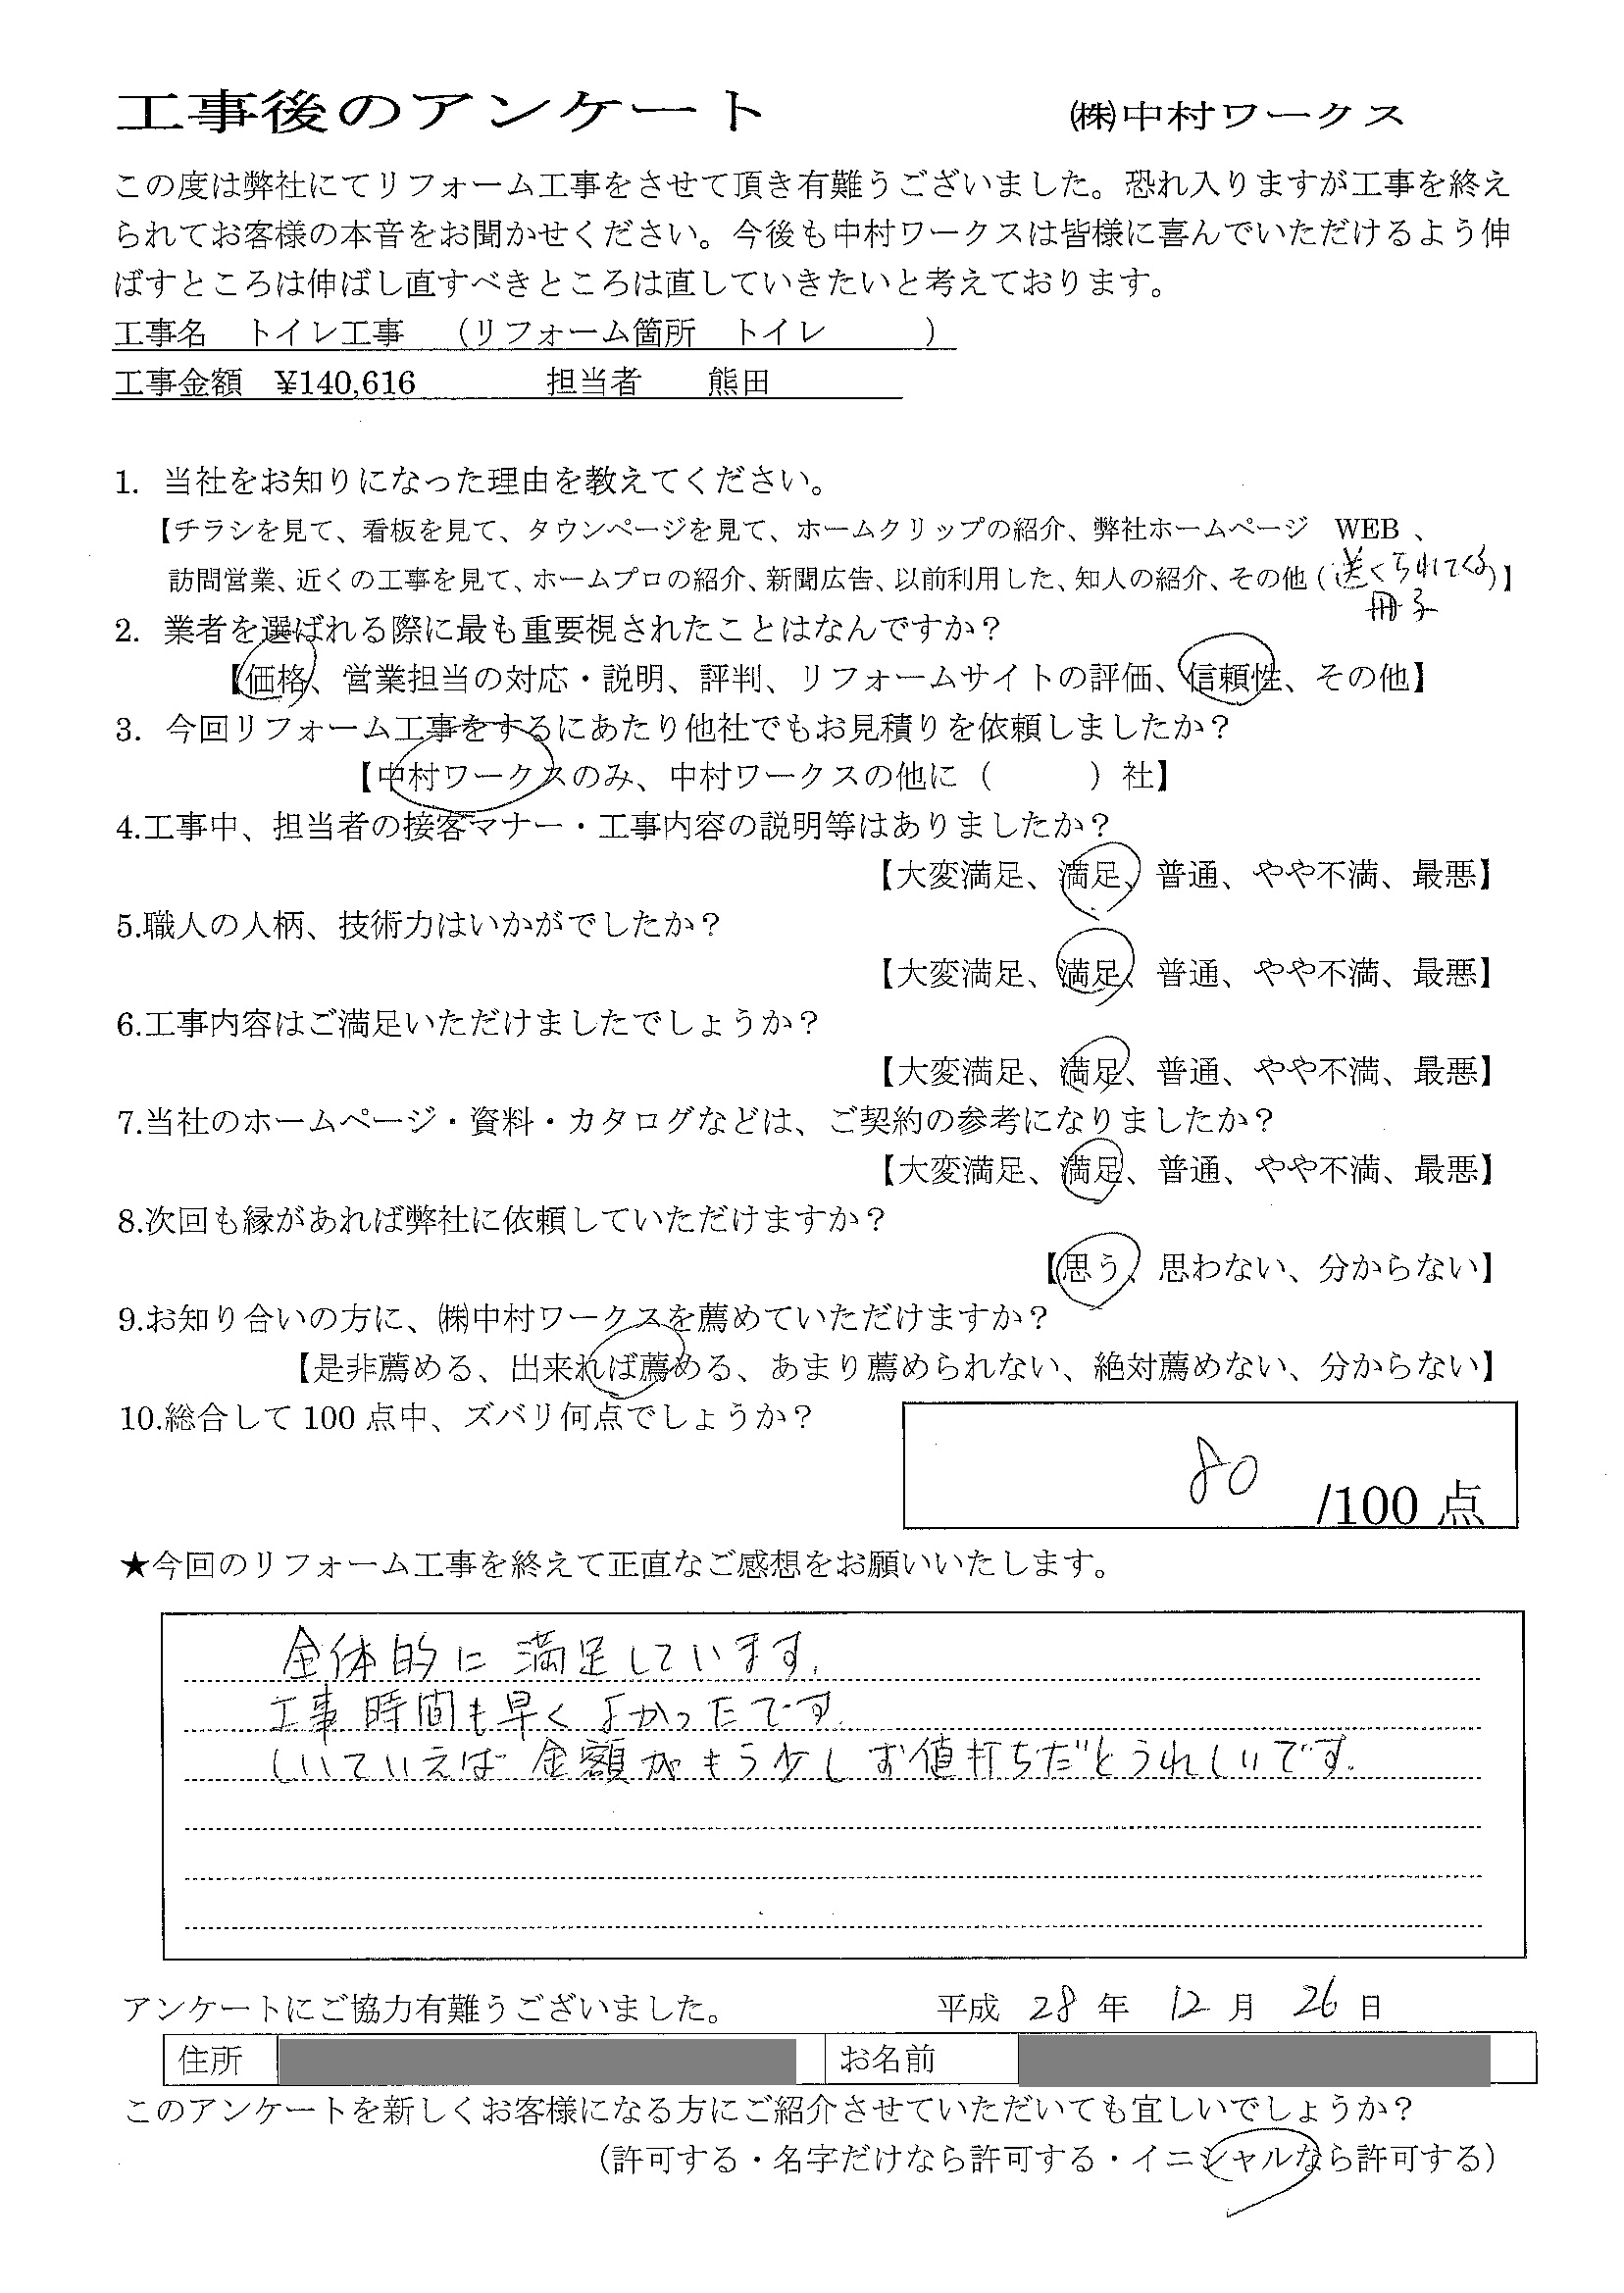 工事後のアンケート　㈱中村ワークス
この度は弊社にてリフォーム工事をさせて頂き有難うございました。恐れ入りますが工事を終え
られてお客様の本音をお聞かせください。今後も中村ワークスは皆様に喜んでいただけるよう伸
ばすところは伸ばし直すべきところは直していきたいと考えております。
工事名　トイレ工事　（リフォーム箇所　トイレ　　　）
工事金額　¥140,616　　　担当者　　熊田
1. 当社をお知りになった理由を教えてください。
【チラシを見て、看板を見て、タウンページを見て、ホームクリップの紹介、弊社ホームページ　WEB 、
訪問営業、近くの工事を見て、ホームプロの紹介、新聞広告、以前利用した、知人の紹介、その他（送くられてくる）】
冊子
2. 業者を選ばれる際に最も重要視されたことはなんですか？
【価格、営業担当の対応・説明、評判、リフォームサイトの評価、信頼性、その他】
3. 今回リフォーム工事をするにあたり他社でもお見積りを依頼しましたか？
【中村ワークスのみ、中村ワークスの他に（　　　）社】
4.工事中、担当者の接客マナー・工事内容の説明等はありましたか？
【大変満足、満足、普通、やや不満、最悪】
5.職人の人柄、技術力はいかがでしたか？
【大変満足、満足、普通、やや不満、最悪】
6.工事内容はご満足いただけましたでしょうか？
【大変満足、満足、普通、やや不満、最悪】
7.当社のホームページ・資料・カタログなどは、ご契約の参考になりましたか？
【大変満足、満足、普通、やや不満、最悪】
8.次回も縁があれば弊社に依頼していただけますか？
【思う、思わない、分からない】
9.お知り合いの方に、㈱中村ワークスを薦めていただけますか？
【是非薦める、出来れば薦める、あまり薦められない、絶対薦めない、分からない】
10.総合して 100 点中、ズバリ何点でしょうか？
80 /100 点
★今回のリフォーム工事を終えて正直なご感想をお願いいたします。
全体的に満足しています.
工事時間も早くよかったです.
しいていえば金額がもう少しお値打ちだとうれしいです.
アンケートにご協力有難うございました。　平成 28 年 12 月 26 日
住所　お名前
このアンケートを新しくお客様になる方にご紹介させていただいても宜しいでしょうか？
（許可する・名字だけなら許可する・イニシャルなら許可する）